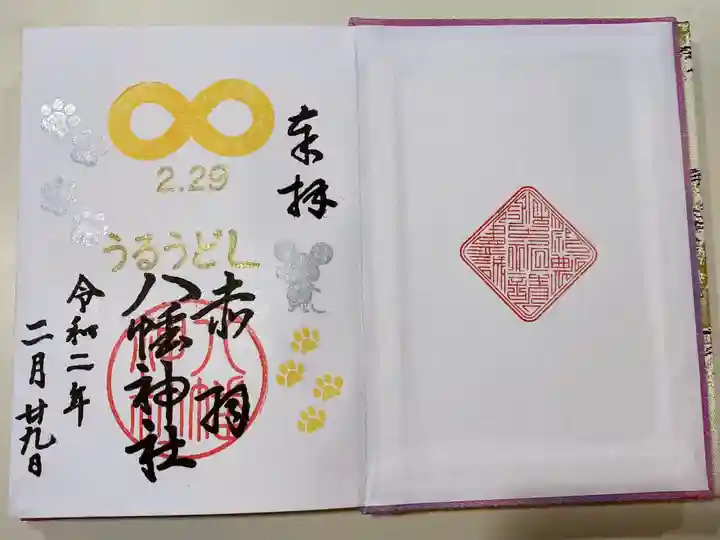 奉拝
2.29
うるうどし
赤羽
八幡神社
令和二年
二月廿九日
八幡神社